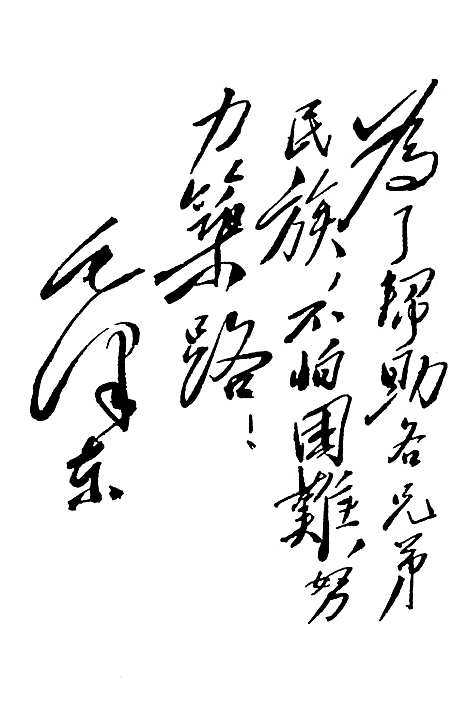 為了幫助各兄弟
民族，不怕困難，努
力築路！
毛澤东